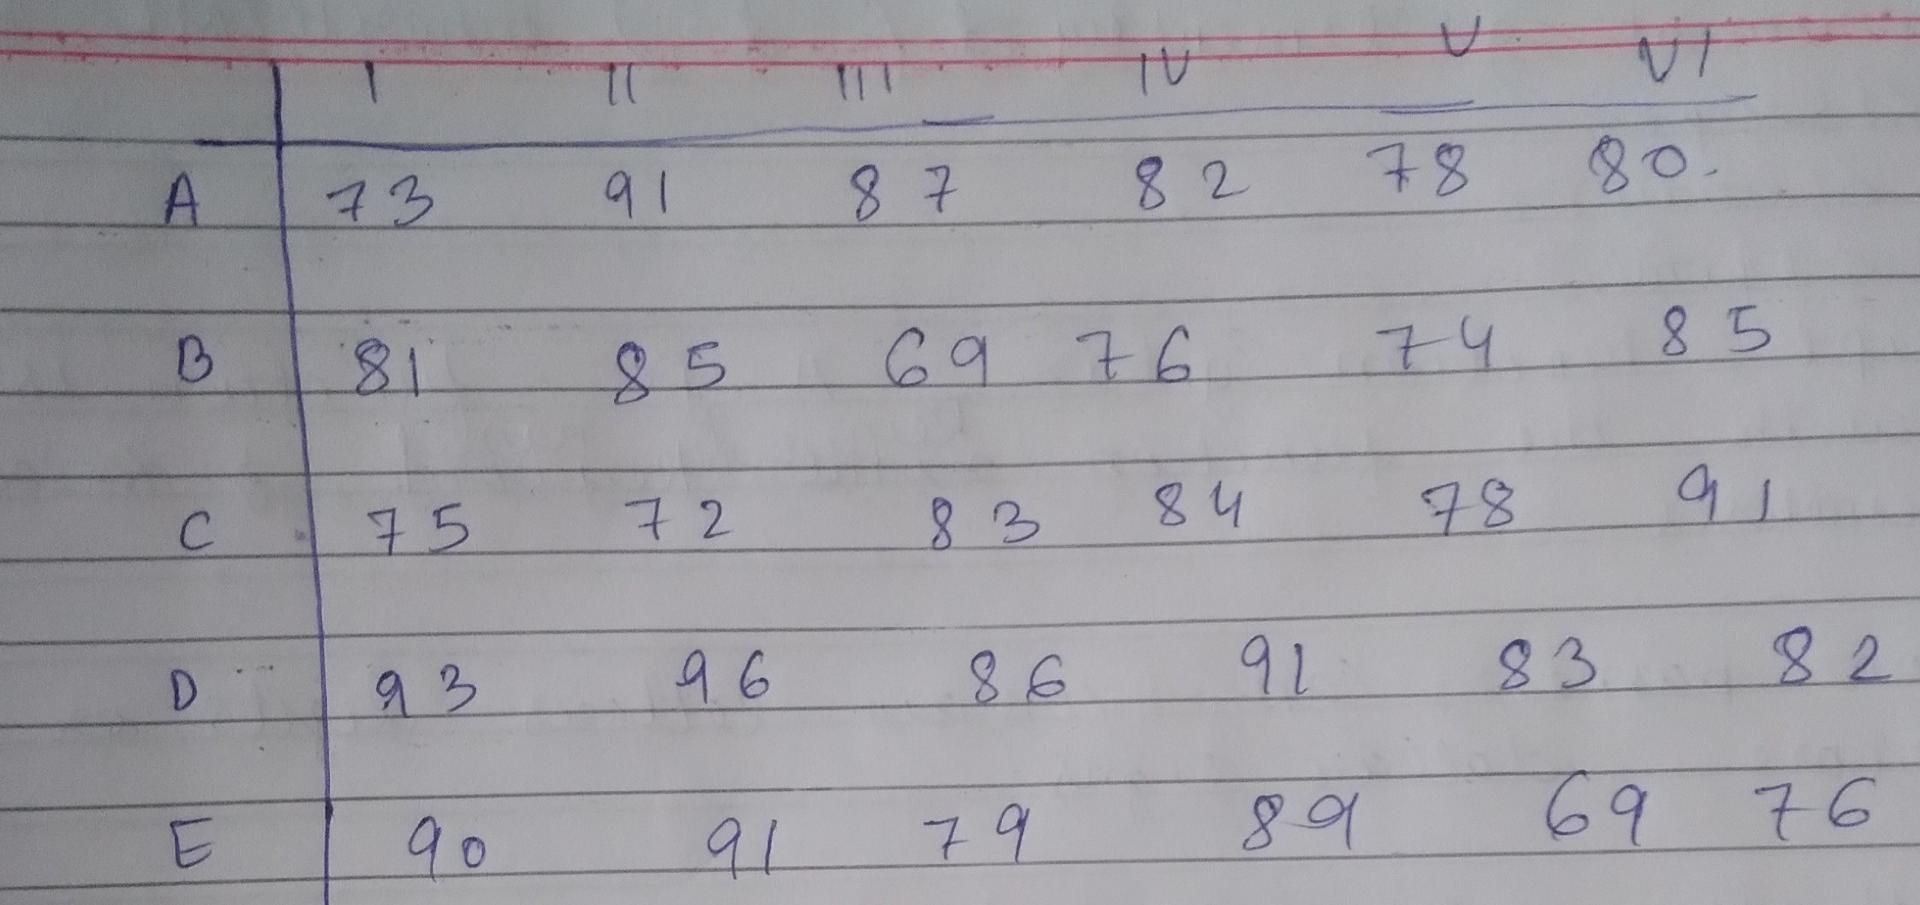 I II III IV V VI
A 73 91 87 82 78 80.
B 81 85 69 76 74 85
C 75 72 83 84 78 91
D 93 96 86 91 83 82
E 90 91 79 89 69 76